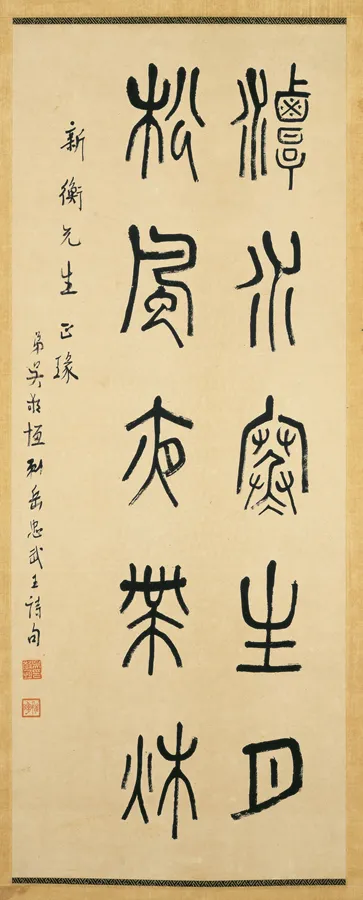 潭水寒生月
松風夜帶秋
新衡先生正瑑
弟吳敬恆岳忠武王詩句